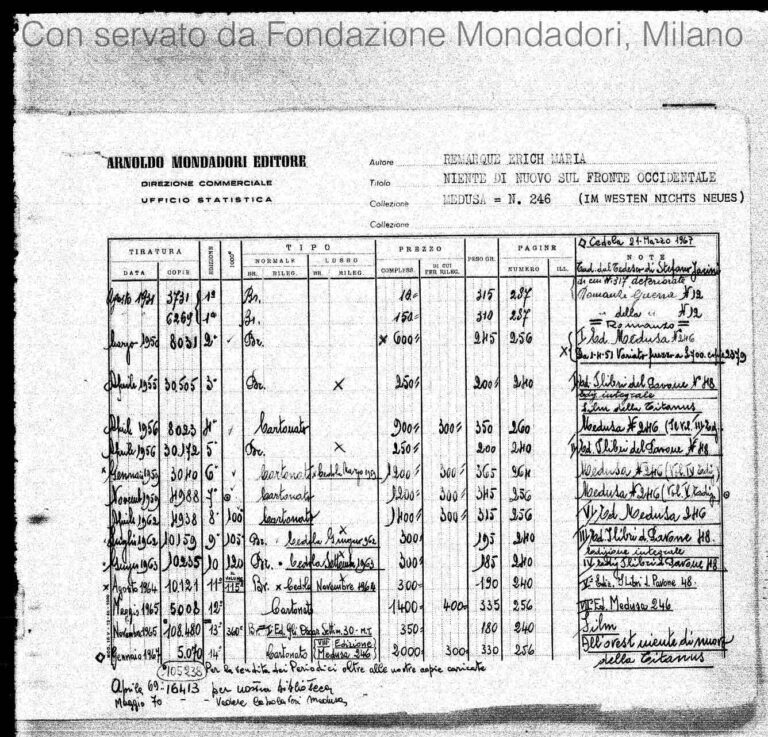 Con servato da Fondazione Mondadori, Milano
ARNOLDO MONDADORI EDITORE
DIREZIONE COMMERCIALE
UFFICIO STATISTICA
Autore REMARQUE ERICH MARIA
Titolo NIENTE DI NUOVO SUL FRONTE OCCIDENTALE
Collezione MEDUSA = N. 246 (IM WESTEN NICHTS NEUES)
Collezione
TIRATURA EDIZIONE TIPO PREZZO PESO GR. PAGINE Cedola 21 Marzo 1967
NORMALE LUSSO NOTE
DATA COPIE BR. RILEG. BR. RILEG. COMPLESS. DI CUI PER RILEG. NUMERO ILL. Trad. dal Tedesco di Stefano Jacini
di cui N. 317 deteriorate
Agosto 1931 3731 1ª Br. 315 287 Romanzi e Guerra Nº 12
6269 1ª Br. 310 287 della Nº 12
= Romanzo =
Marzo 1950 8031 2° Br. × 600 245 256 I Ed. Medusa Nº 246
Variato prezzo a
Aprile 1955 30.505 3° Br. × 250 200 240 Ed. I libri del Pavone Nº 48
Ediz. integrale
Film della Titanus
Aprile 1956 8023 4° Cartonato 900 300 350 260 Medusa Nº 246
Aprile 1956 30.172 5° Br. × 250 200 240 Ed. I libri del Pavone Nº 48
Gennaio 1959 3040 6° Cartonato × Cedola Marzo 1959 1200 300 365 264 Medusa Nº 246
Novemb. 1959 4988 7° Cartonato 1200 300 345 256 Medusa Nº 246
Aprile 1962 4938 8° 100° Cartonato 1400 300 315 256 VI Ed Medusa 246
Luglio 1962 10.159 9° 105° Br. Cedola Giugno 962 300 195 240 III Ed I libri d. Pavone 48.
Edizione integrale
Giugno 1963 10235 10 120 Br. Cedola Settembre 1963 300 185 240 IV Ediz I libri d Pavone 48
Agosto 1964 10.121 11° 115° Br. × Cedola Novembre 1964 300 190 240 V Ediz. I Libri d. Pavone 48.
Maggio 1965 5008 12° Cartonato 1400 400 335 256 VII Ed. Medusa 246
Novembre 1965 108.480 13° 360° Br. I Ed. Gli Oscar Settim. 30 350 180 240 Film
Gennaio 1967 5.070 14° Cartonato VIII Edizione Medusa 246 2000 300 330 256 All'ovest niente di nuovo
della Titanus
105238 Per la vendita dei Periodici oltre alle nostre copie caricate
Aprile 69 - 16413 per nostra Biblioteca
Maggio 70 - Vedere Medusa